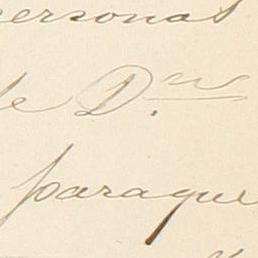 personas
de D.ⁿᵃ
para que